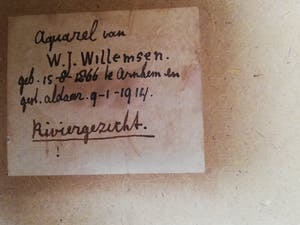 Aquarel van
W.J. Willemsen.
geb. 15-8-1866 te Arnhem en
gest. aldaar. 9-1-1914.
Riviergezicht.